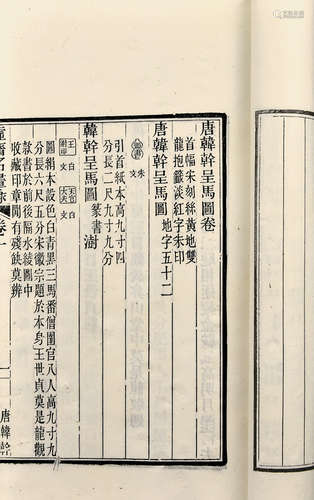 唐韓幹呈馬圖卷
首幅朱刻絲黃地雙
龍抱籤淡紅字朱印
唐韓幹呈馬圖 地字五十二
朱文
引首紙本高九寸四
分長二尺九寸九分
韓幹呈馬圖 篆書 澍
王 白文
天官大夫 白文
圖絹本設色黑白三馬番僧圉官八人高九寸九
分長六尺五分宋徽宗題於本身王世貞莫是龍觀
款書於前後隔水綾圖中
收藏印章間有殘缺莫辨
名畫錄 卷一
一 唐韓幹